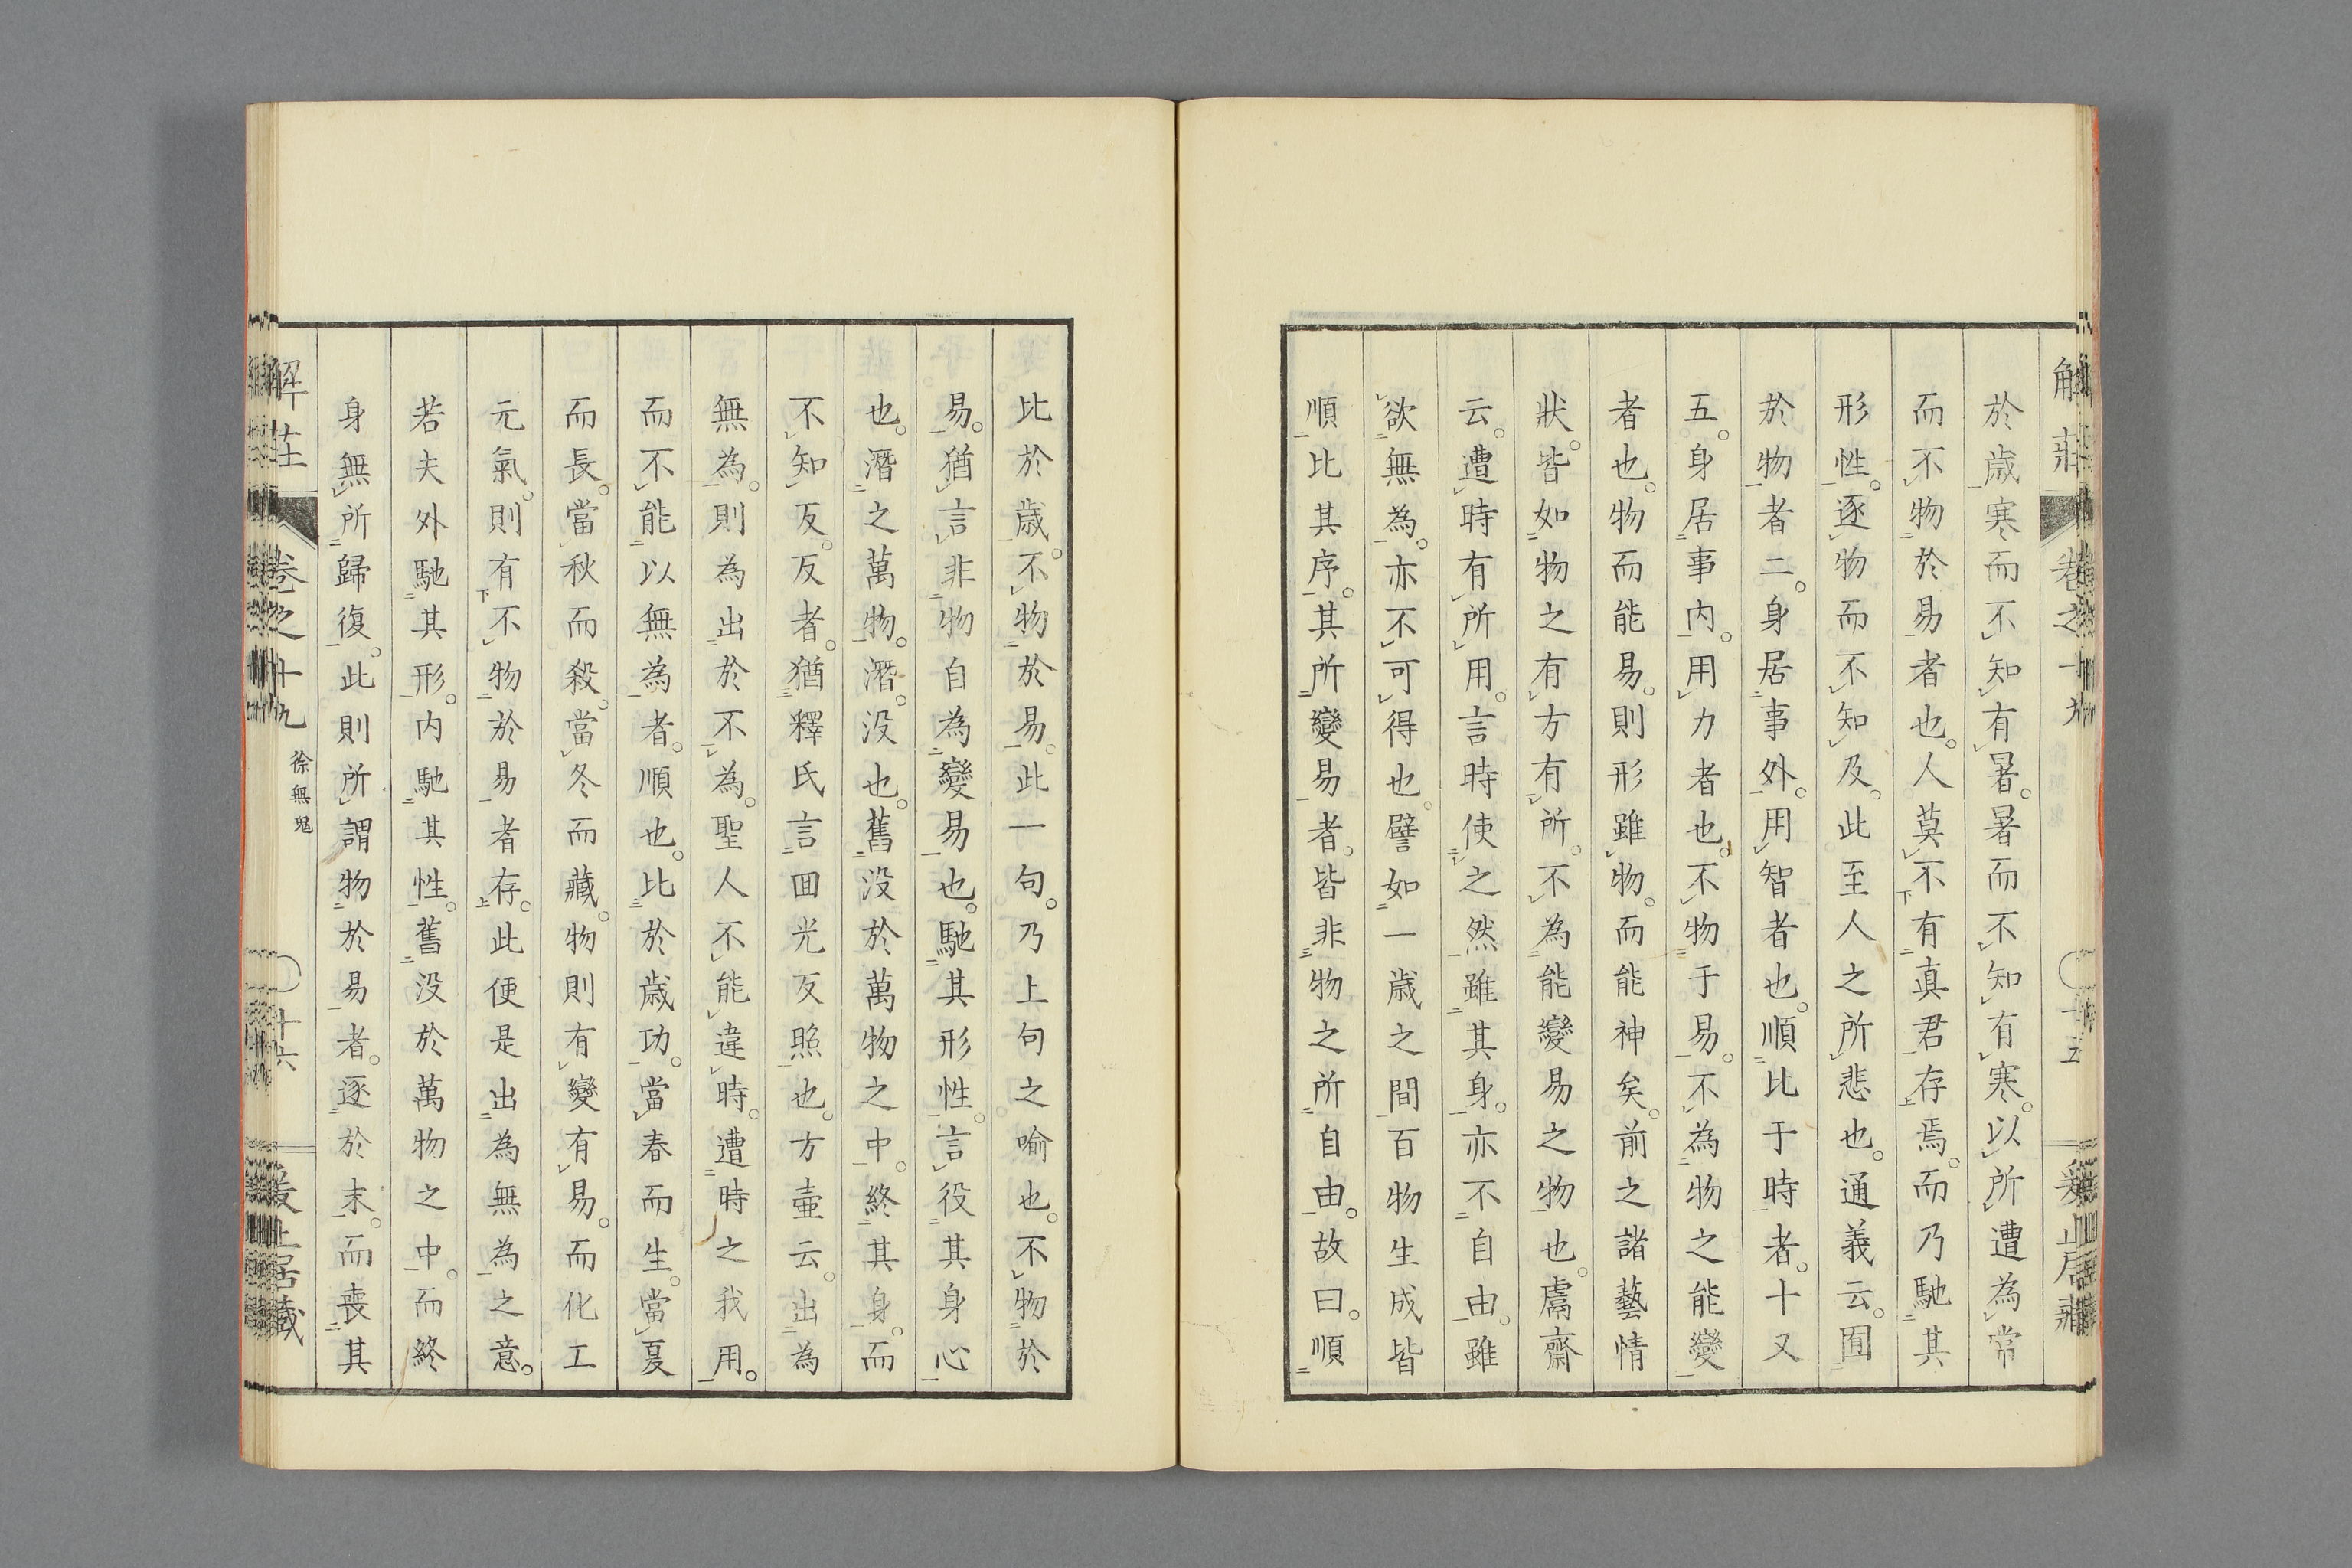 解莊 卷之十九 〇十五
於歲寒而不知有暑。暑而不知有寒。以所遭為常
而不物於易者也。人莫不有真君存焉。而乃馳其
形性。逐物而不知及。此至人之所悲也。通義云。囿
於物者二。身居事外。用智者也。順比于時者。十又
五。身居事內。用力者也。不物于易。不為物之能變
者也。物而能易。則形雖物。而能神矣。前之諸藝情
狀。皆如物之有方有所。不為能變易之物也。鬳齋
云。遭時有所用。言時使之然。雖其身。亦不自由。雖
欲無為。亦不可得也。譬如一歲之間百物生成皆
順比其序。其所變易者。皆非物之所自由。故曰。順
比於歲。不物於易。此一句。乃上句之喻也。不物於
易。猶言非物自為變易也。馳其形性。言役其身心
也。潛之萬物。潛。没也。舊没於萬物之中。終其身。而
不知反。反者。猶釋氏言囬光反照也。方壺云。出為
無為。則為出於不為。聖人不能違時。遭時之我用。
而不能以無為者。順也。比於歲功。當春而生。當夏
而長。當秋而殺。當冬而藏。物則有變有易。而化工
元氣。則有不物於易者存。此便是出為無為之意。
若夫外馳其形。内馳其性。舊没於萬物之中。而終
身無所歸復。此則所謂物於易者。逐於末。而喪其
解莊 卷之十九 徐無鬼 〇十六